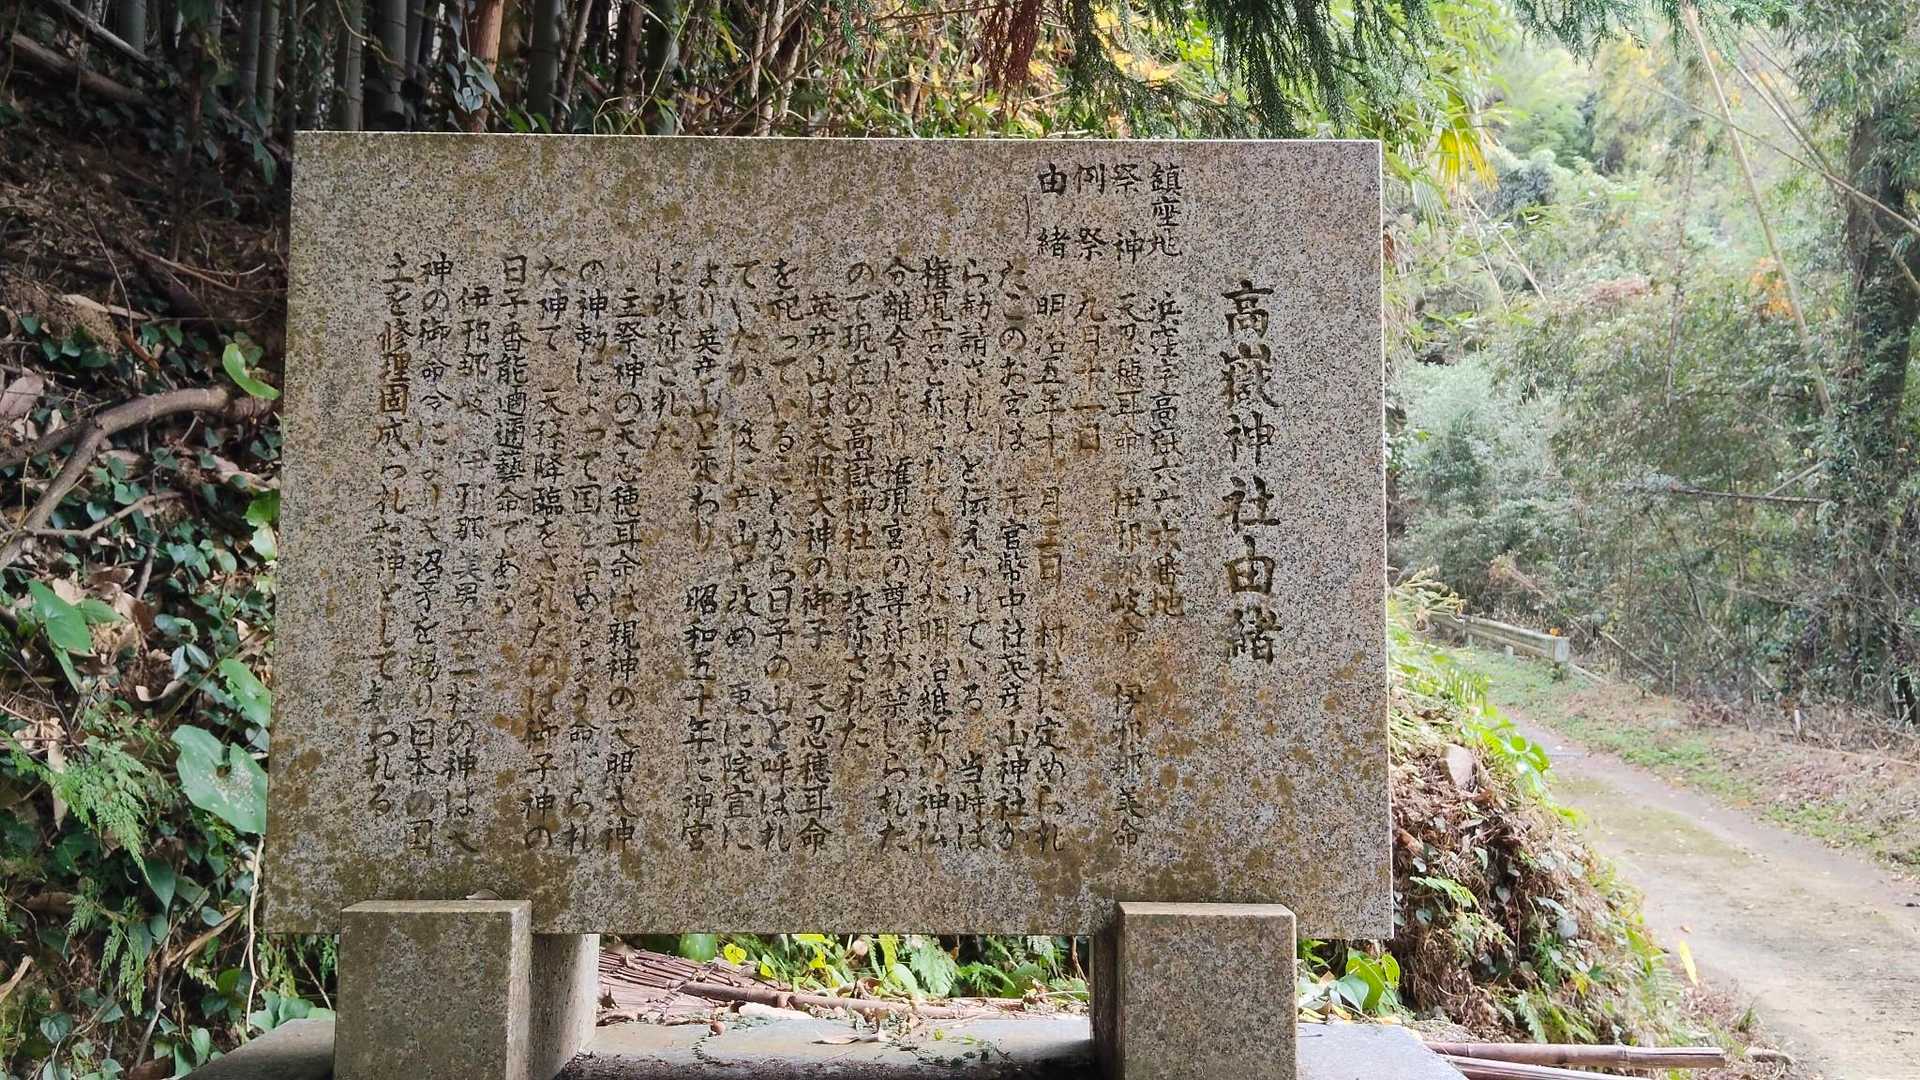 高嶽神社由緒
鎮座地 字高嶽六六六番地
祭神 天忍穂耳命 伊邪那岐命 伊邪那美命
例祭 九月十一日
由緒 明治五年十一月三日 村社に定められ
たこのお宮は 元官幣中社英彦山神社か
ら勧請されたと伝えられている 当時は
権現宮と称されていたが明治維新の神仏
分離令により 権現宮の尊称が禁じられた
ので現在の高嶽神社に改称された
英彦山は天照大神の御子 天忍穂耳命
を祀っていることから日子の山と呼ばれ
ていたが 後に彦山と改め 更に院宣に
より英彦山と変わり 昭和五十年に神宮
に改称された
主祭神の天忍穂耳命は親神の天照大神
の神勅によって国を治めるよう命じられ
た神で 天孫降臨をされたのは御子神の
日子番能邇邇藝命である
伊邪那岐 伊邪那美男女二柱の神は天
神の御命令により天沼矛を賜り日本の国
土を修理固成られた神として知られる